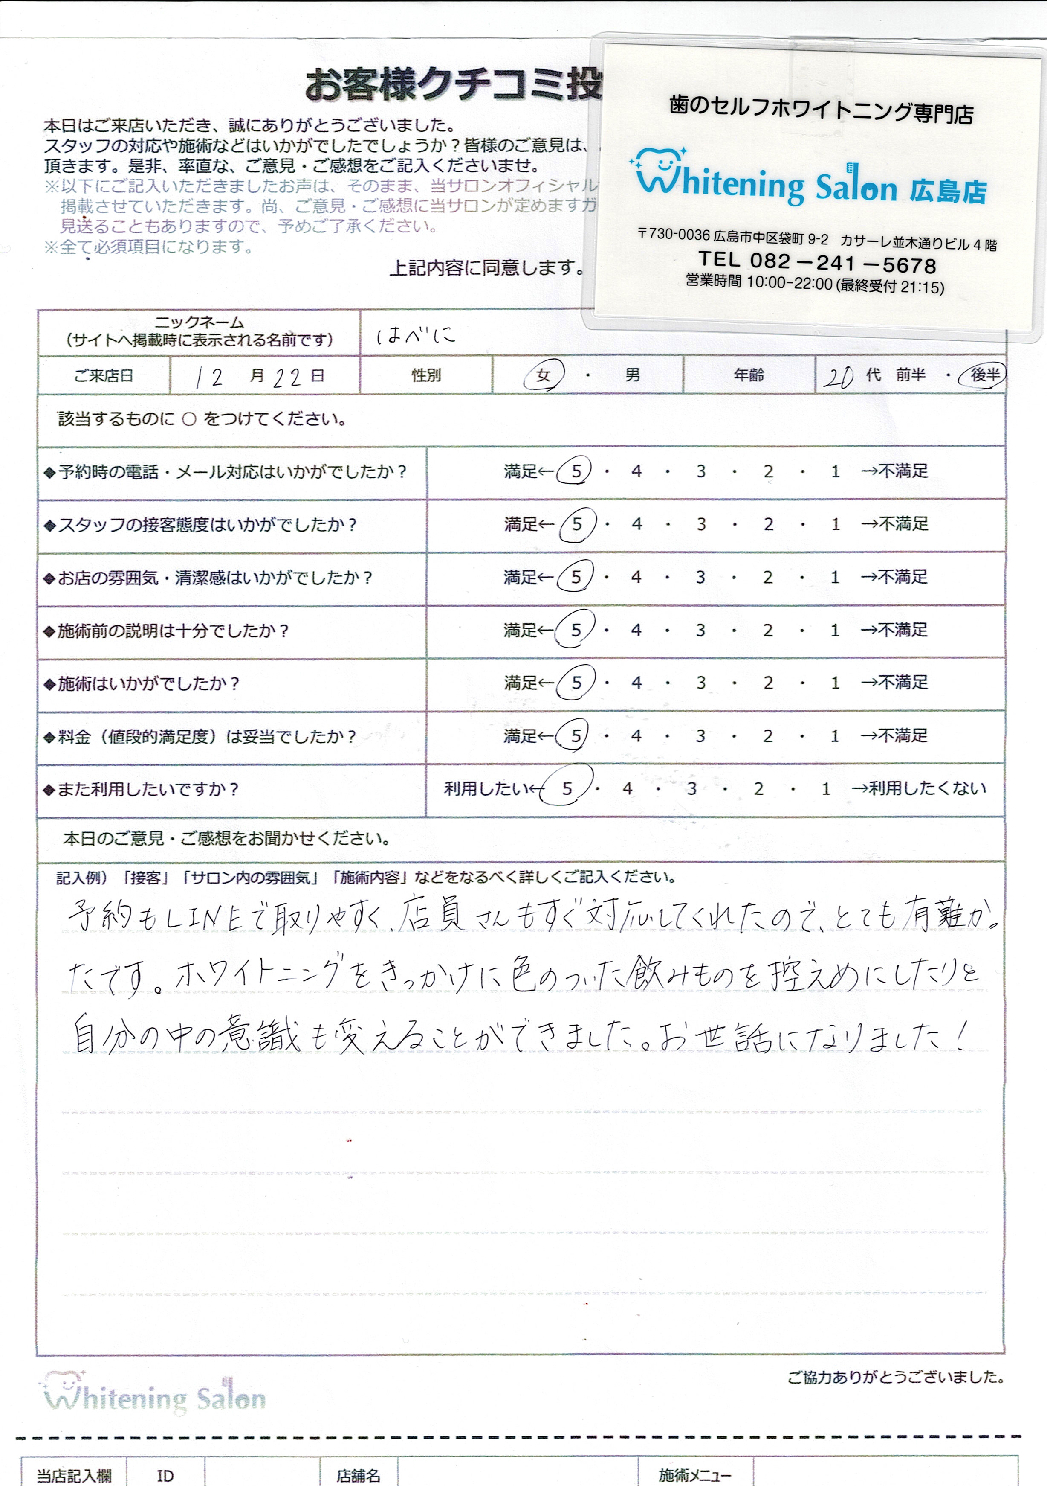 お客様クチコミ投
本日はご来店いただき、誠にありがとうございました。
スタッフの対応や施術などはいかがでしたでしょうか？皆様のご意見は、
頂きます。是非、率直な、ご意見・ご感想をご記入くださいませ。
※以下にご記入いただきましたお声は、そのまま、当サロンオフィシャル
掲載させていただきます。尚、ご意見・ご感想に当サロンが定めますガ
見送ることもありますので、予めご了承ください。
※全て必須項目になります。
上記内容に同意します。
歯のセルフホワイトニング専門店
Whitening Salon 広島店
〒730-0036 広島市中区袋町 9-2 カサーレ並木通りビル 4 階
TEL 082－241－5678
営業時間 10:00-22:00 (最終受付 21:15)
ニックネーム
（サイトへ掲載時に表示される名前です）
はべに
ご来店日 12 月 22 日 性別 女 ・ 男 年齢 20 代 前半 ・ 後半
該当するものに ○ をつけてください。
◆予約時の電話・メール対応はいかがでしたか？ 満足← 5 ・ 4 ・ 3 ・ 2 ・ 1 →不満足
◆スタッフの接客態度はいかがでしたか？ 満足← 5 ・ 4 ・ 3 ・ 2 ・ 1 →不満足
◆お店の雰囲気・清潔感はいかがでしたか？ 満足← 5 ・ 4 ・ 3 ・ 2 ・ 1 →不満足
◆施術前の説明は十分でしたか？ 満足← 5 ・ 4 ・ 3 ・ 2 ・ 1 →不満足
◆施術はいかがでしたか？ 満足← 5 ・ 4 ・ 3 ・ 2 ・ 1 →不満足
◆料金（値段的満足度）は妥当でしたか？ 満足← 5 ・ 4 ・ 3 ・ 2 ・ 1 →不満足
◆また利用したいですか？ 利用したい← 5 ・ 4 ・ 3 ・ 2 ・ 1 →利用したくない
本日のご意見・ご感想をお聞かせください。
記入例）「接客」「サロン内の雰囲気」「施術内容」などをなるべく詳しくご記入ください。
予約もLINEで取りやすく、店員さんもすぐ対応してくれたので、とても有難かっ
たです。ホワイトニングをきっかけに色のついた飲みものを控えめにしたりと
自分の中の意識も変えることができました。お世話になりました！
ご協力ありがとうございました。
Whitening Salon
当店記入欄 ID 店舗名 施術メニュー